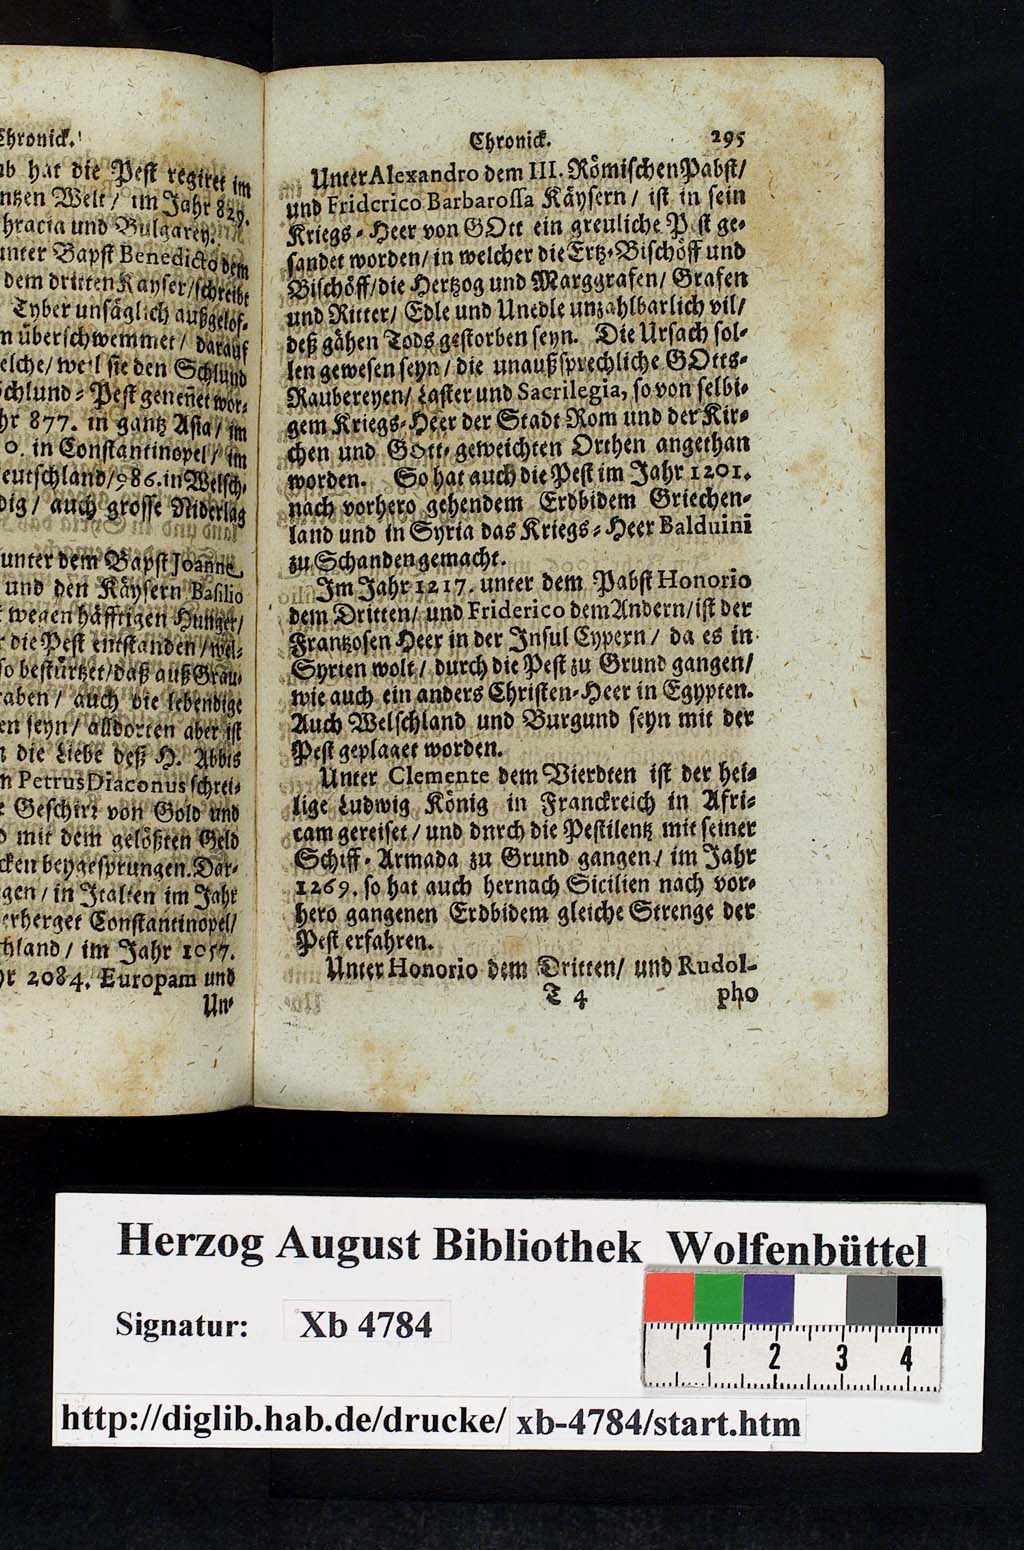 Chronick.
hat die Pest regiret im
Welt / im Jahr 829.
und Bulgarey.
unter Bapst Benedicto dem
dem dritten Kayser / schreibt
Tyber unsäglich außgelof-
überschwemmet / darauf
weil sie den Schlund
Schlund-Pest geneñet wor-
877. in gantz Asia / im
in Constantinopel / im
Teutschland / 986. in Welsch-
auch grosse Niderlag
unter dem Bapst Joanne
und den Käysern Basilio
wegen häffrigen Hunger /
die Pest entstanden / wel-
so bestürtzet / daß auß Grau-
auch die lebendige
seyn / alldorten aber ist
die Liebe deß H. Abbts
Petrus Diaconus schrei-
Geschirr von Gold und
mit dem gelößten Geld
beygesprungen. Dar-
in Italien im Jahr
Constantinopel /
im Jahr 1057.
2084. Europam und
Un-
Chronick. 295
Unter Alexandro dem III. Römischen Pabst /
und Friderico Barbarossa Käysern / ist in sein
Kriegs-Heer von GOtt ein greuliche P st ge-
sandet worden / in welcher die Ertz-Bischöff und
Bischöff / die Hertzog und Marggrafen / Grafen
und Ritter / Edle und Unedle unzahlbarlich vil /
deß gähen Tods gestorben seyn. Die Ursach sol-
len gewesen seyn / die unaußsprechliche GOtts-
Raubereyen / Laster und Sacrilegia, so von selbi-
gem Kriegs-Heer der Stadt Rom und der Kir-
chen und Gott-geweichten Orthen angethan
worden. So hat auch die Pest im Jahr 1201.
nach vorhero gehendem Erdbidem Griechen-
land und in Syria das Kriegs-Heer Balduini
zu Schanden gemacht.
Im Jahr 1217. unter dem Pabst Honorio
dem Dritten / und Friderico dem Andern / ist der
Frantzosen Heer in der Insul Cypern / da es in
Syrien wolt / durch die Pest zu Grund gangen /
wie auch ein anders Christen-Heer in Egypten.
Auch Welschland und Burgund seyn mit der
Pest geplaget worden.
Unter Clemente dem Vierdten ist der hei-
lige Ludwig König in Franckreich in Afri-
cam gereiset / und dnrch die Pestilentz mit seiner
Schiff-Armada zu Grund gangen / im Jahr
1269. so hat auch hernach Sicilien nach vor-
hero gangenen Erdbidem gleiche Strenge der
Pest erfahren.
Unter Honorio dem Dritten / und Rudol-
T 4 pho
Herzog August Bibliothek Wolfenbüttel
Signatur: Xb 4784
1 2 3 4
http://diglib.hab.de/drucke/ xb-4784/start.htm